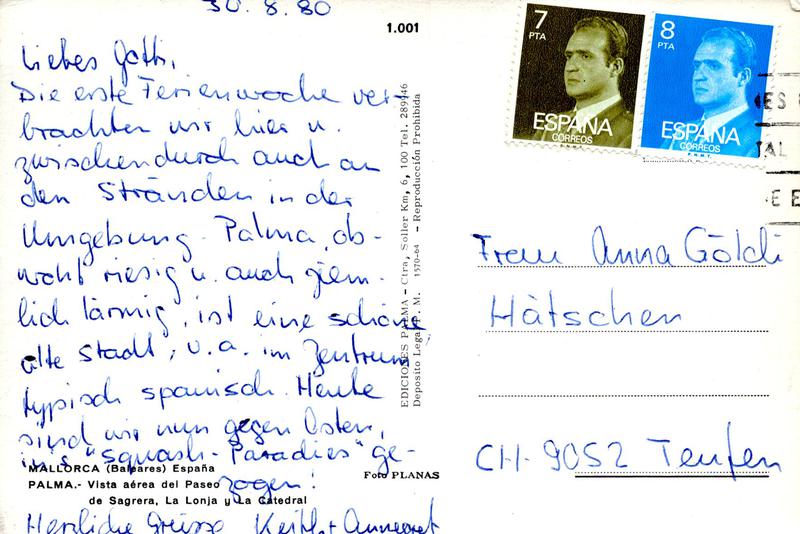 30. 8. 80
1.001
Liebes Gotti,
Die erste Ferienwoche ver-
brachten wir hier u.
zwischendurch auch an
den Stränden in der
Umgebung. Palma, ob-
wohl riesig u. auch ziem-
lich lärmig, ist eine schöne
alte Stadt, v. a. im Zentrum
typisch spanisch. Heute
sind wir nun gegen Osten,
ins "Squash-Paradies" ge-
zogen!
Herzliche Grüsse
MALLORCA (Baleares) España
PALMA.- Vista aérea del Paseo
de Sagrera, La Lonja y La Catedral
Foto PLANAS
EDICIONES PALMA - Ctra. Soller Km, 6, 100 Tel. 289946
Deposito Legal P. M. 1570-64 - Reproducción Prohibida
7
PTA
ESPAÑA
CORREOS
8
PTA
ESPAÑA
CORREOS
Anna Göldi
Hätschen
CH-9052 Teufen